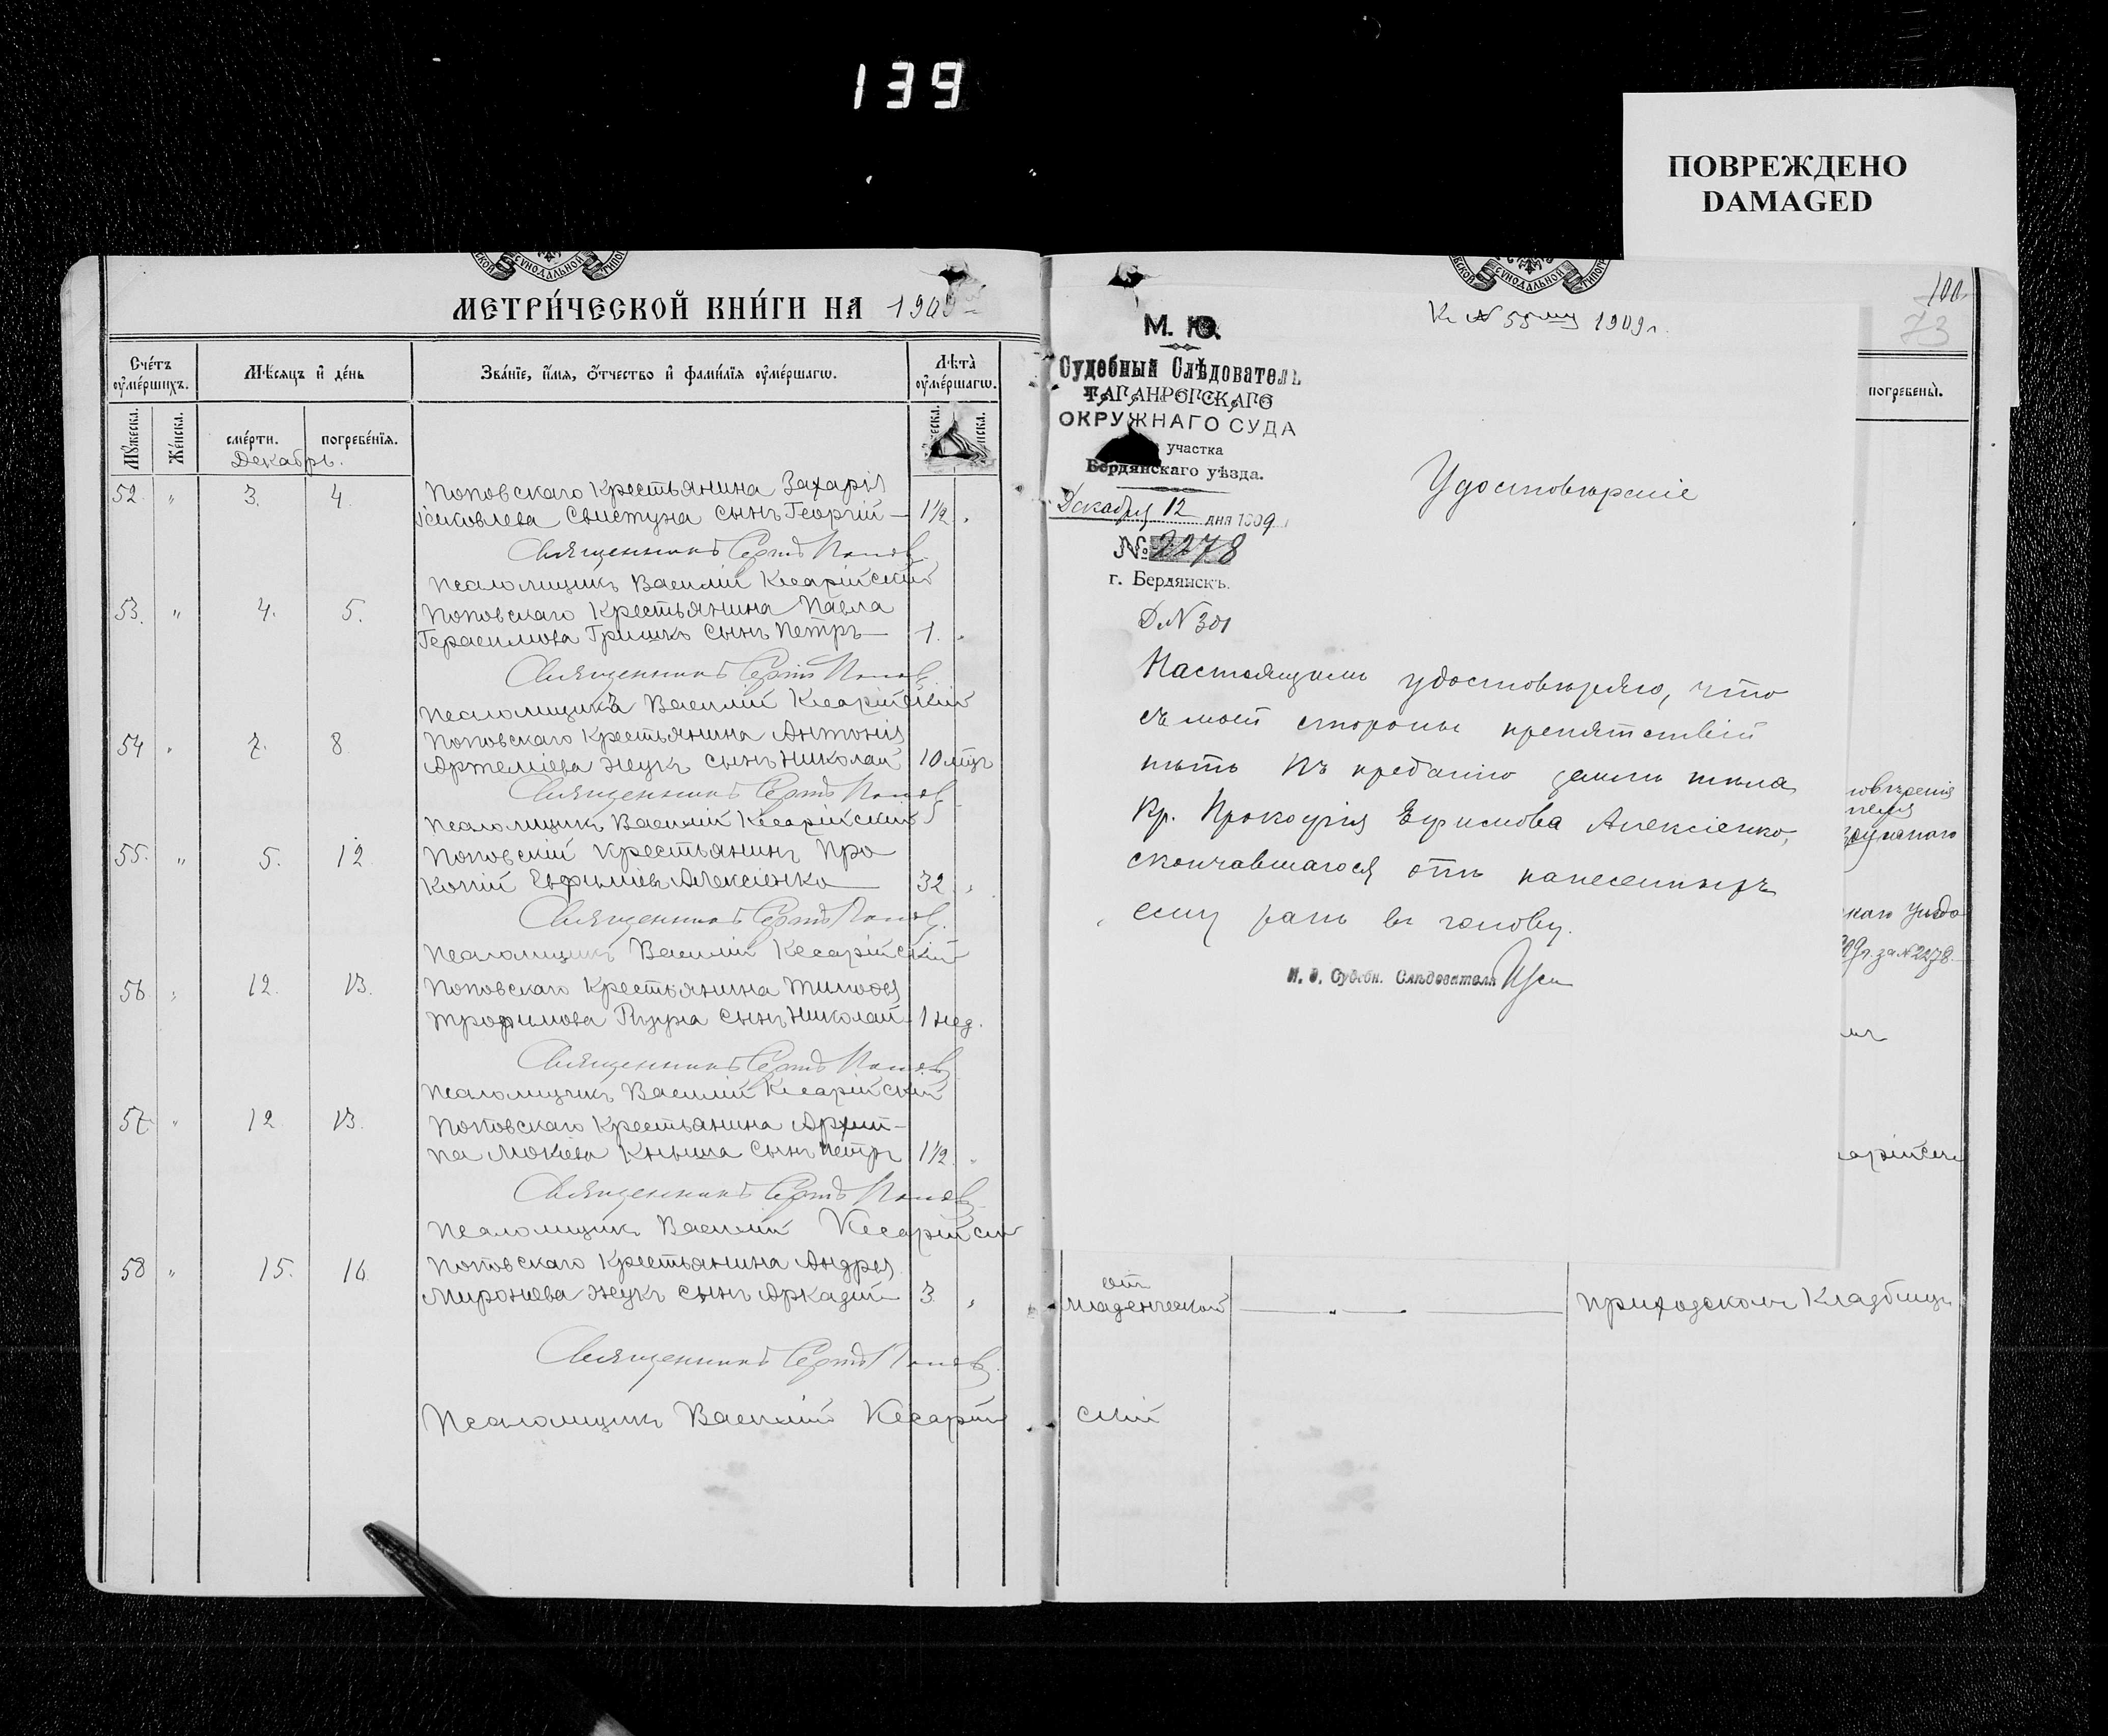 139
ПОВРЕЖДЕНО
DAMAGED
МЕТРИ́ЧЕСКОЙ КНИ́ГИ НА 1909
Сче́тъ ѹ҆ме́ршихъ.
Мѣ́сяцъ и҆ де́нь
Зва́нїе, и҆́мѧ, ѻ҆́тчество и҆ фами́лїѧ ѹ҆ме́ршагѡ.
Лѣ́та ѹ҆ме́ршагѡ.
Мꙋ́жеска.
Же́нска.
сме́рти.
погребе́нїѧ.
Декабрь.
52. " 3. 4. Поповскаго Крестьянина Захарія
Іаковлева Свистуна сынъ Георгій — 1½
Священникъ Сергій Поповъ
Псаломщикъ Василій Кесарійскій
53. " 4. 5. Поповскаго Крестьянина Павла
Герасимова Гришко сынъ Петръ — 1.
Священникъ Сергій Поповъ
Псаломщикъ Василій Кесарійскій
54 " 7. 8. Поповскаго Крестьянина Антонія
Артеміева Жукъ сынъ Николай 10 мѣц
Священникъ Сергій Поповъ
Псаломщикъ Василій Кесарійскій
55. " 5. 12. Поповскій Крестьянинъ Про
копій Евфиміевъ Алексіенко — 32
Священникъ Сергій Поповъ.
Псаломщикъ Василій Кесарійскій
56 " 12. 13. Поповскаго Крестьянина Тимоѳея
Трофимова сынъ Николай 1 нед.
Священникъ Сергій Поповъ
Псаломщикъ Василій Кесарійскій
57. " 12. 13. Поповскаго Крестьянина Архип-
па Мокіева Кныша сынъ Петръ 1½
Священникъ Сергій Поповъ
Псаломщикъ Василій Кесарійскій
58 " 15. 16. Поповскаго Крестьянина Андрея
Миронова Жукъ сынъ Аркадій — 3.
Священникъ Сергій Поповъ.
Псаломщикъ Василій Кесарій
скій
100
73
К. № 55му 1909 г.
М. Ю.
Судебный Слѣдователь
ТАГАНРОГСКАГО
ОКРУЖНАГО СУДА
участка
Бердянскаго уѣзда.
Декабря 12 дня 1909
№ 2278
г. Бердянскъ.
Д. № 301
Удостовѣреніе
Настоящимъ удостовѣряю, что
съ моей стороны препятствій
нѣтъ къ преданію землѣ тѣла
Кр. Прокофія Ефимова Алексіенко,
скончавшагося отъ нанесенныхъ
ему ранъ въ голову.
И. д. Судебн. Слѣдователя
погребены̀.
овѣренія
каго Уѣзда
09 г. за № 2278.
арійскі
отъ
младенческой
приходскомъ Кладбищѣ